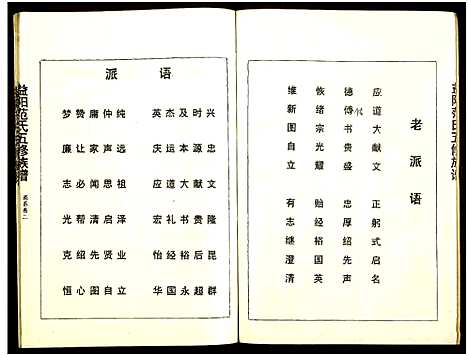 益阳范氏五修族谱
老派语
应道大献文 正躬式启名
德傅书贵盛 忠厚绍先声
恢绪宗光耀 贻经裕国英
维新图自立 有志继澄清
派语
梦赞庸仲纯 英杰及时兴
廉让家声远 庆运本源忠
志必闻思祖 应道大献文
光帮清启泽 宏礼书贵隆
克绍先贤业 怡经裕后昆
恒心图自立 华国永超群
益阳范氏五修族谱